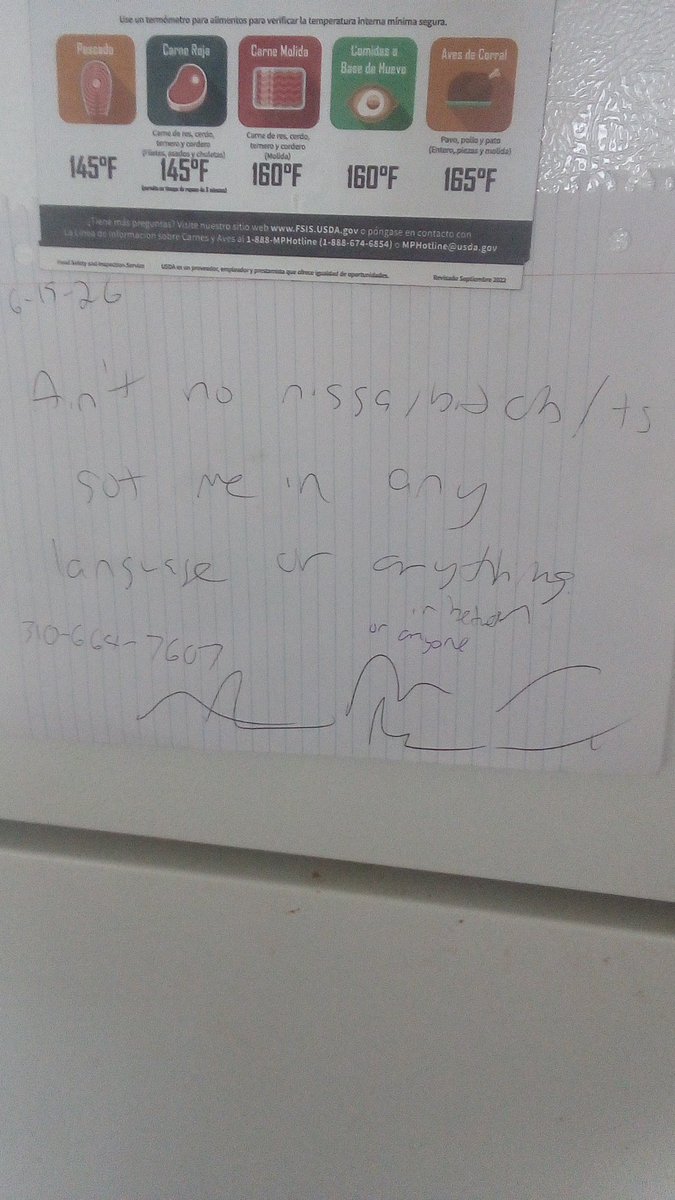 Use un termómetro para alimentos para verificar la temperatura interna mínima segura.
Pescado
Carne Roja
Carne Molida
Comidas a Base de Huevo
Aves de Corral
Carne de res, cerdo,
ternero y cordero
(Filetes, asados y chuletas)
Carne de res, cerdo,
ternero y cordero
(Molida)
Pavo, pollo y pato
(Entero, piezas y molida)
145°F
145°F
160°F
160°F
165°F
¿Tiene más preguntas? Visite nuestro sitio web www.FSIS.USDA.gov o póngase en contacto con
La Línea de Información sobre Carnes y Aves al 1-888-MPHotline (1-888-674-6854) o MPHotline@usda.gov
Food Safety and Inspection Service
USDA es un proveedor, empleador y prestamista que ofrece igualdad de oportunidades.
Revisado Septiembre 2022
6-19-26
Ain't no nigga/bitch/ts
got me in any
language or anything
in between
or anyone
310-664-7607